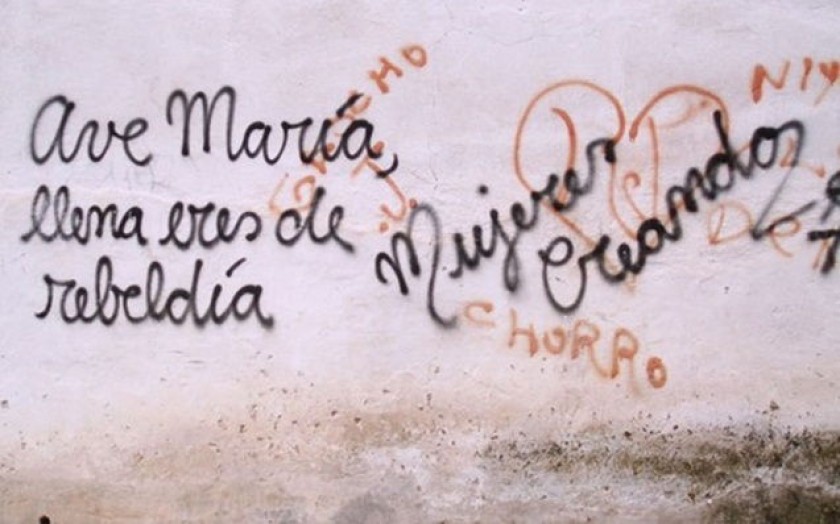 Ave María,
llena eres de
rebeldía
Mujeres
Creando
CHORRO